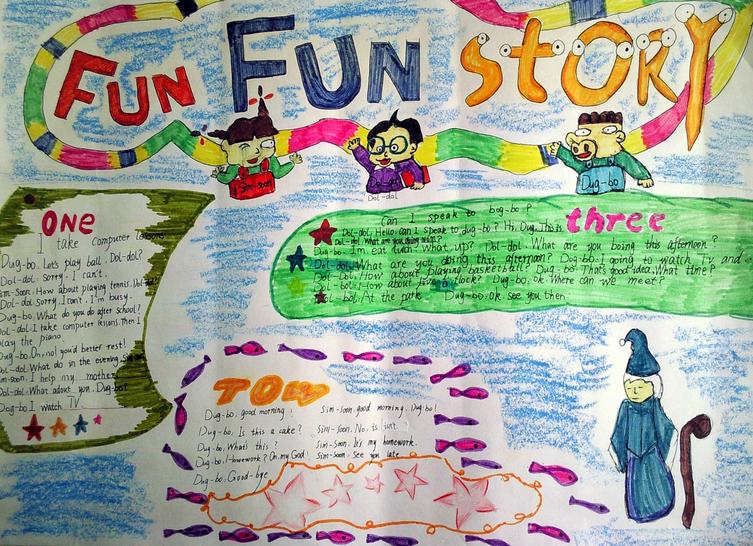 FUN FUN STORY
Sim-soon
Dol-dol
Dug-bo
ONE
I take computer lessons
Dug-bo. Let's play ball. Dol-dol?
Dol-dol. Sorry. I can't.
Sim-Soon. How about playing tennis. Dol-dol?
Dol-dol. Sorry. I can't. I'm busy.
Dug-bo. What do you do after school?
Dol-dol. I take computer lessons. Then I
play the piano.
Dug-bo. Oh, no! you'd better rest!
Dol-dol. What do in the evening,
Sim-soon. I help my mother
Dol-dol. What about you. Dug-bo?
Dog-bo I watch TV
three
Can I speak to bog-bo?
Dol-dol. Hello. can I speak to dug-bo? Hi, Dug. This is
Dol-dol. What are you
Dug-bo. I'm eat lunch. What up? Dol-dol. What are you boing this afternoon?
Dol-dol. What are you doing this afternoon? Dog-bo. I going to watch TV and
Dol-dol. How about playing basketball? Dug-bo. That's good idea. What time?
Dol-dol. How about five o'clock? Dug-bo. Ok. Where can we meet?
Dol-bol. At the park Dug-bo. Ok. See you then
TOW
Dug-bo, good morning! Sim-soon, good morning, Dug-bo!
Dug-bo, Is this a cake? Sim-soon. No, is isnt
Dug-bo, What's this? Sim-Soon. It's my homework.
Dug-bo, Homework? Oh, my God! Sim-soon: see you late
Dug-bo: Good-bye